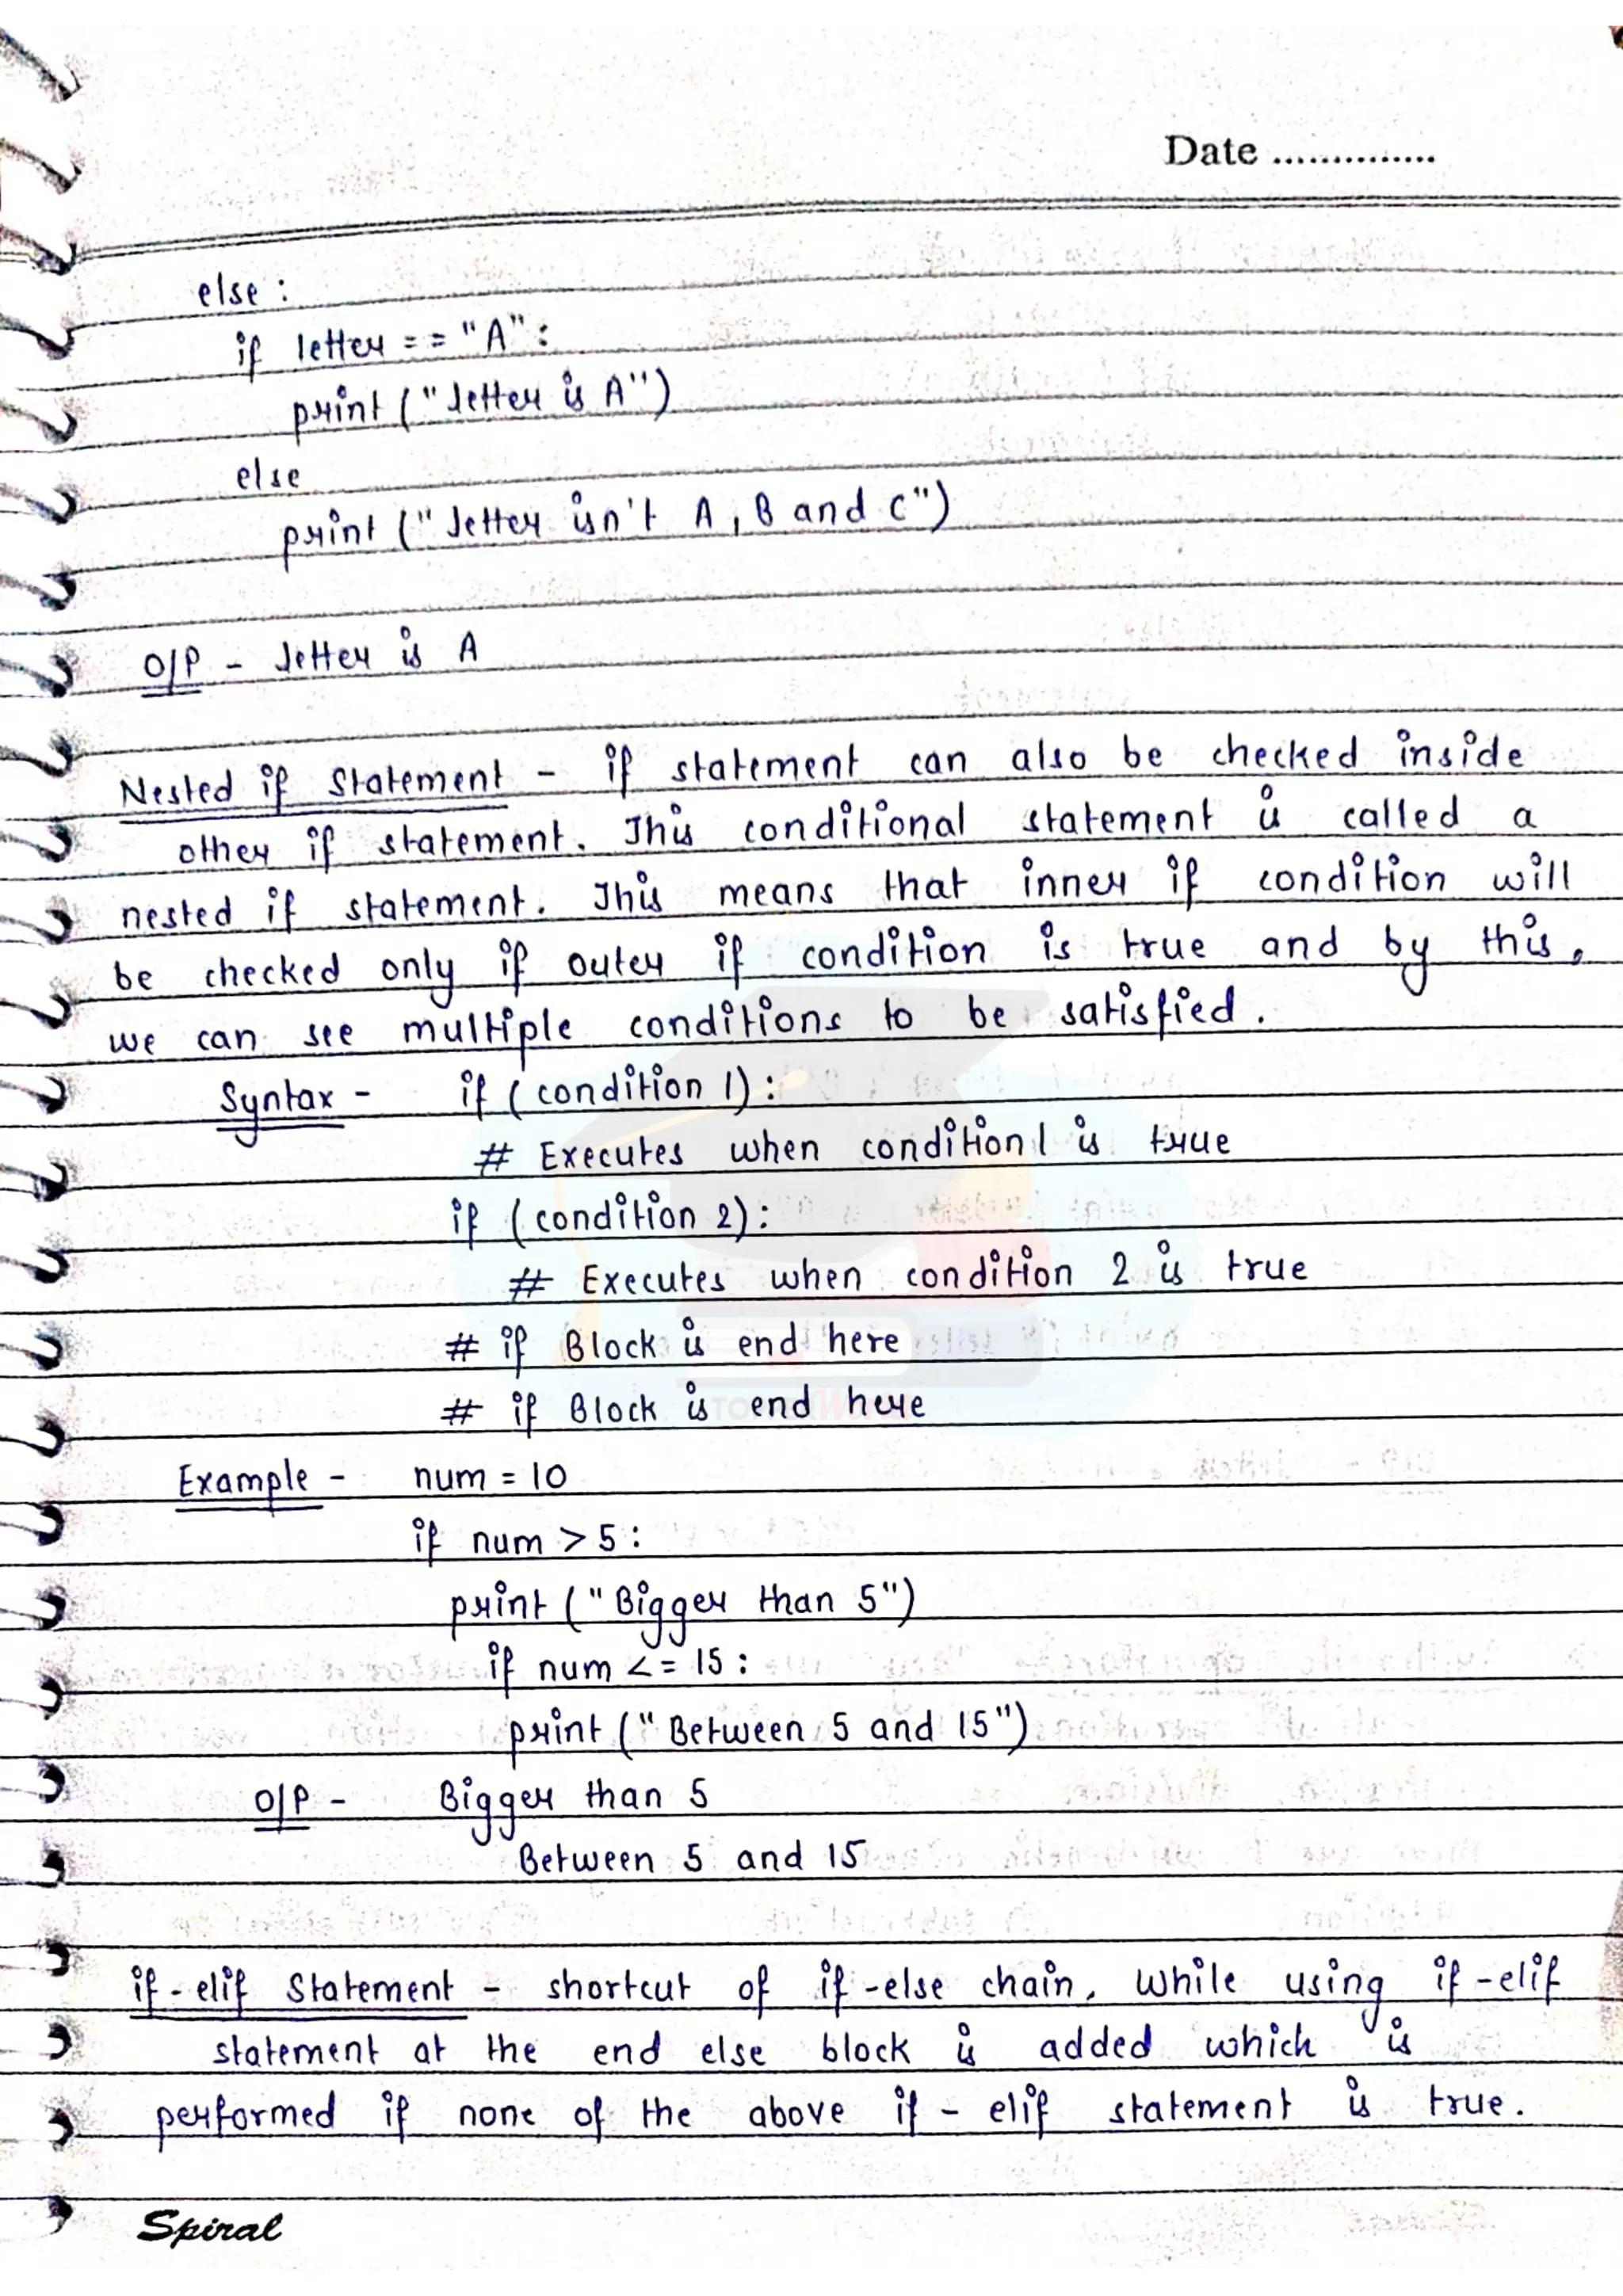 Date ...............
else :
if letter == "A":
print ("letter is A")
else
print ("letter isn't A, B and C")
O/P - letter is A
Nested if Statement - if statement can also be checked inside
other if statement. This conditional statement is called a
nested if statement. This means that inner if condition will
be checked only if outer if condition is true and by this,
we can see multiple conditions to be satisfied.
Syntax - if (condition 1):
# Executes when condition 1 is true
if (condition 2):
# Executes when condition 2 is true
# if Block is end here
# if Block is end here
Example - num = 10
if num > 5:
print ("Bigger than 5")
if num <= 15:
print ("Between 5 and 15")
O/P - Bigger than 5
Between 5 and 15
if-elif Statement - shortcut of if-else chain, While using if-elif
statement at the end else block is added which is
performed if none of the above if - elif statement is true.
Spiral